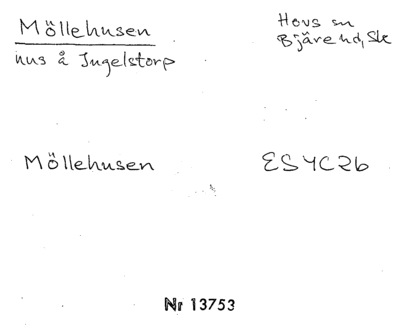 Möllehusen
hus å Ingelstorp
Hovs sn
Bjäre hd, Sk
Möllehusen
ES4C2b
Nr 13753